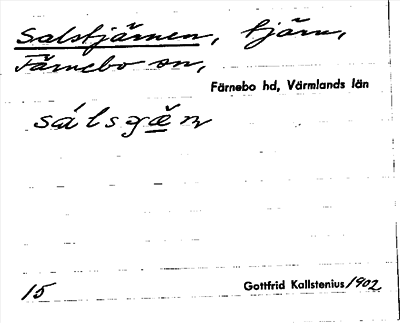 Salstjärnen, tjärn,
Färnebo sn,
Färnebo hd, Värmlands län
sálsɟæ̌n
15
Gottfrid Kallstenius 1902